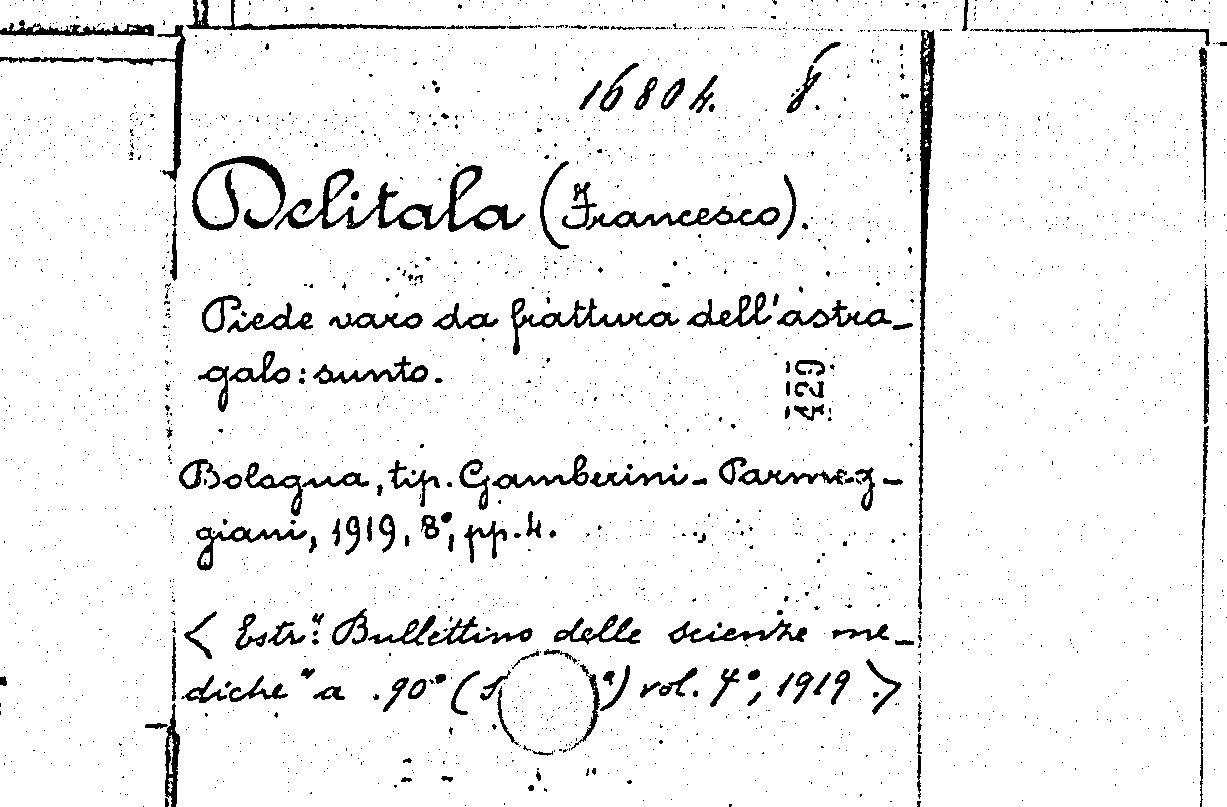 16804. 8.
Delitala (Francesco).
Piede varo da frattura dell'astra-
galo: sunto.
429
Bologna, tip. Gamberini-Parmeg-
giani, 1919, 8°, pp. 4.
< Estr. "Bullettino delle scienze me-
diche" a. 90° (s ª) vol. 7°, 1919 >